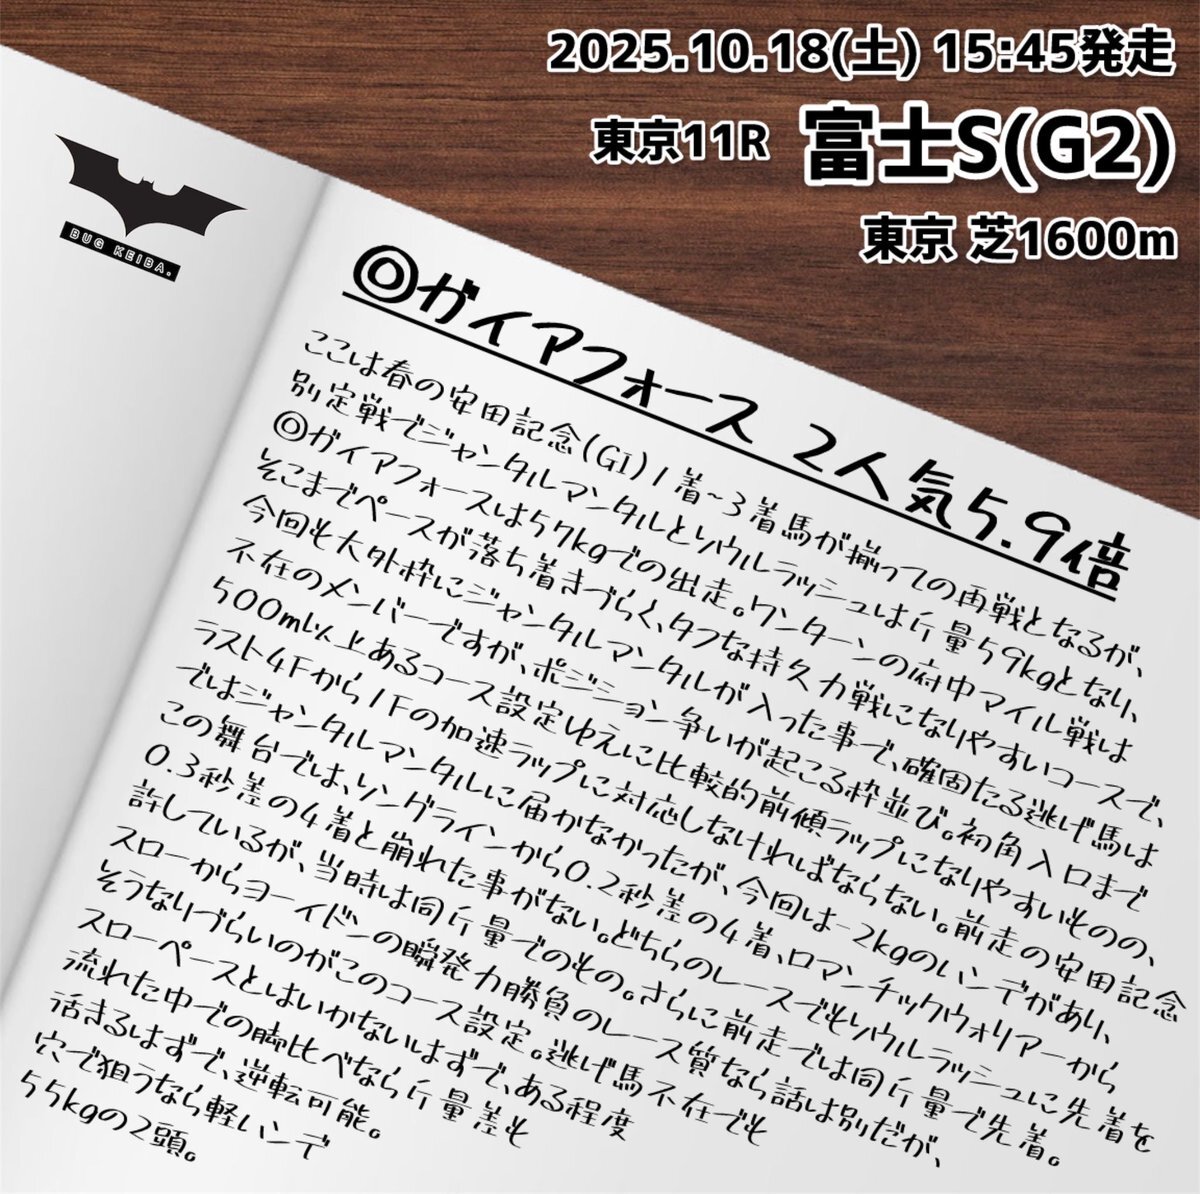 2025.10.18(土) 15:45発走
東京11R 富士S(G2)
東京 芝1600m
BUG KEIBA.
◎ガイアフォース 2人気5.9倍
ここは春の安田記念(G1)1着~3着馬が揃っての再戦となるが、
別定戦でジャンタルマンタルとソウルラッシュは斤量59kgとなり、
◎ガイアフォースは57kgでの出走。ワンターンの府中マイル戦は
そこまでペースが落ち着きづらく、タフな持久力戦になりやすいコースで、
今回も大外枠にジャンタルマンタルが入った事で、確固たる逃げ馬は
不在のメンバーですが、ポジション争いが起こる枠並び。初角入口まで
500m以上あるコース設定ゆえに比較的前傾ラップになりやすいものの、
ラスト4Fから1Fの加速ラップに対応しなければならない。前走の安田記念
ではジャンタルマンタルに届かなかったが、今回は-2kgのハンデがあり、
この舞台では、ソングラインから0.2秒差の4着、ロマンチックウォリアーから
0.3秒差の4着と崩れた事がない。どちらのレースでもソウルラッシュに先着を
許しているが、当時は同斤量でのもの。さらに前走では同斤量で先着。
スローからヨーイドンの瞬発力勝負のレース質なら話は別だが、
そうなりづらいのがこのコース設定。逃げ馬不在でも
スローペースとはいかないはずで、ある程度
流れた中での脚比べなら斤量差も
活きるはずで、逆転可能。
穴で狙うなら軽ハンデ
55kgの2頭。